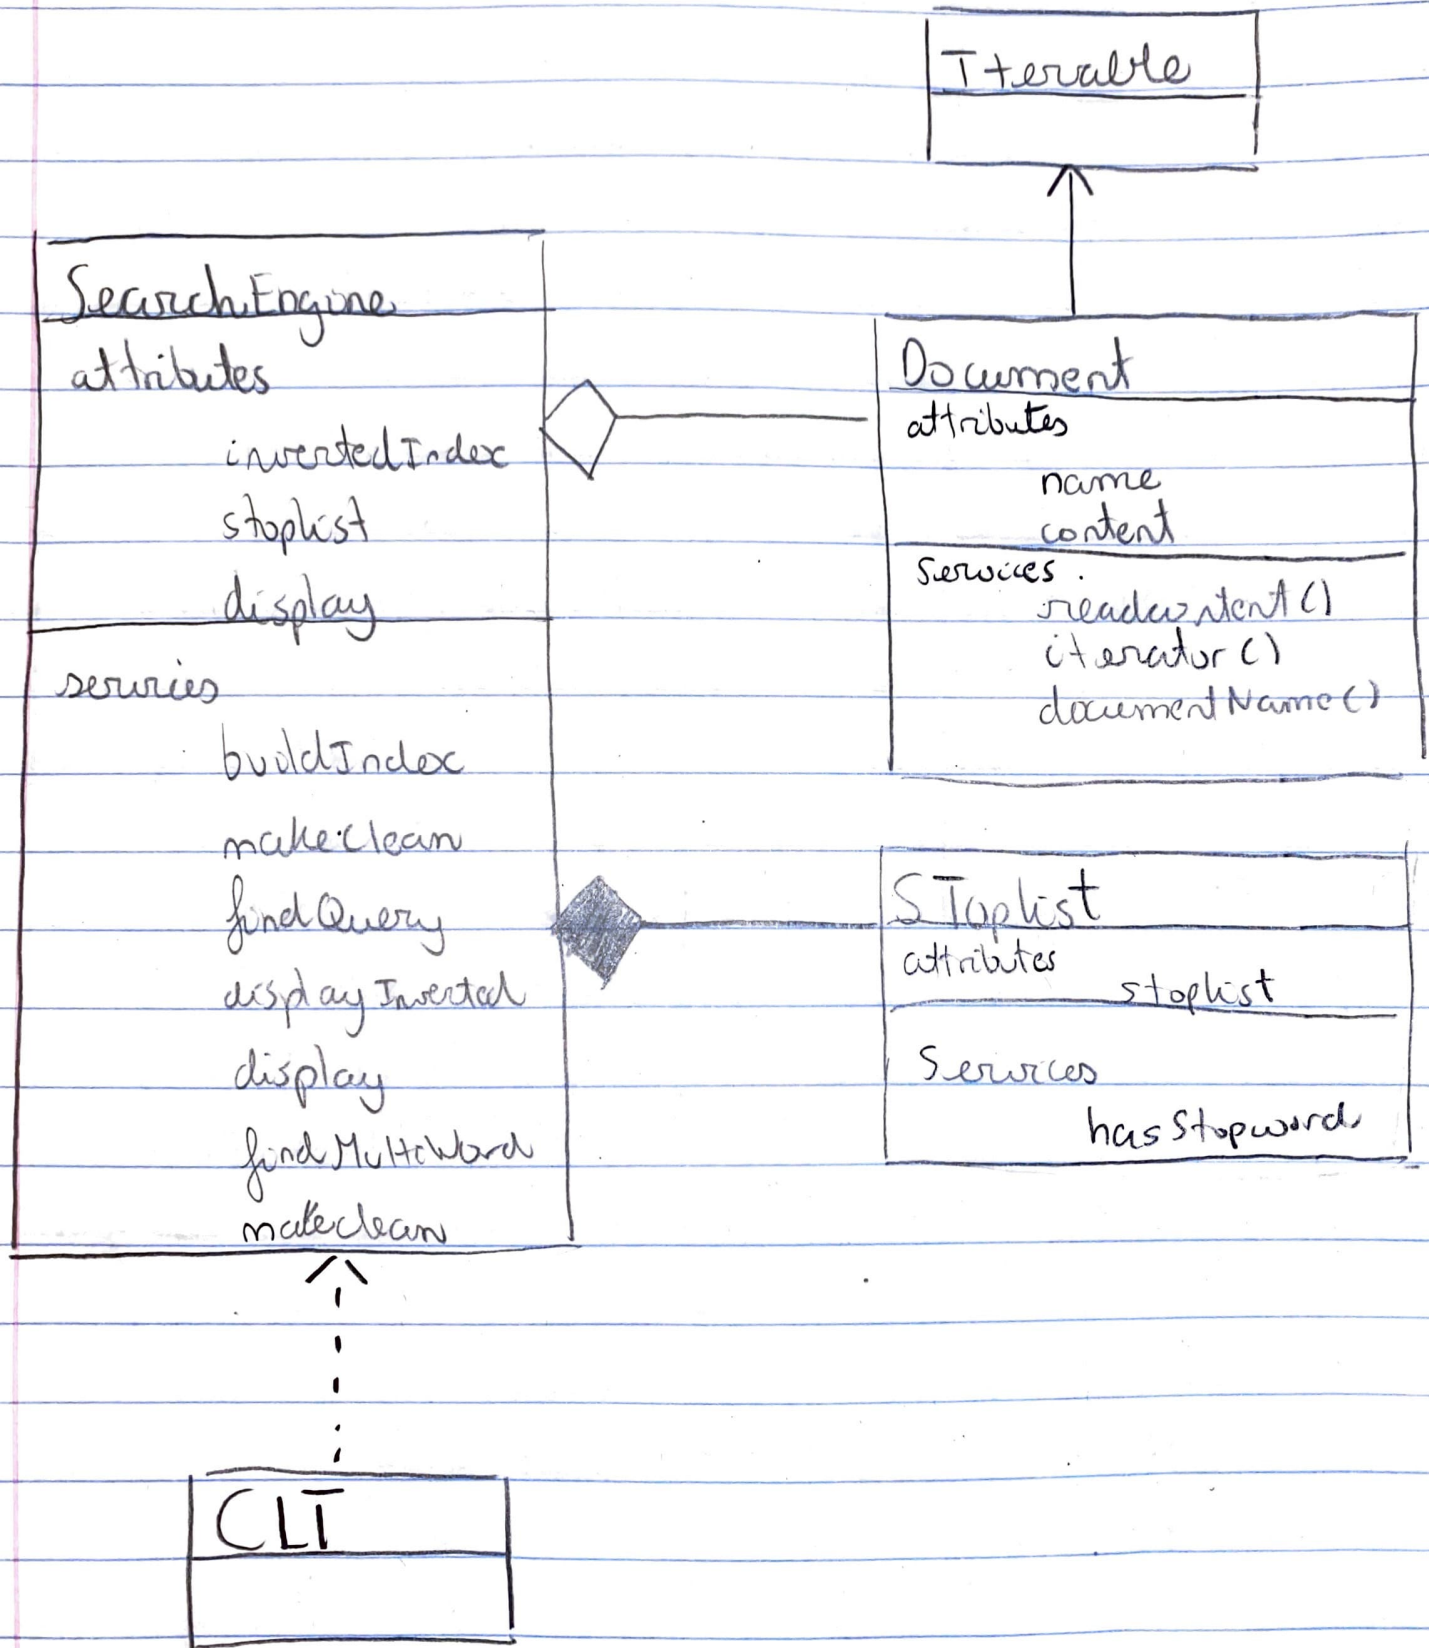 Iterable
SearchEngine
attributes
invertedIndex
stoplist
display
services
buildIndex
makeclean
findQuery
displayInverted
display
findMultiWord
makeclean
Document
attributes
name
content
Services
readcontent()
iterator()
documentName()
SToplist
attributes
stoplist
Services
hasStopword
CLI